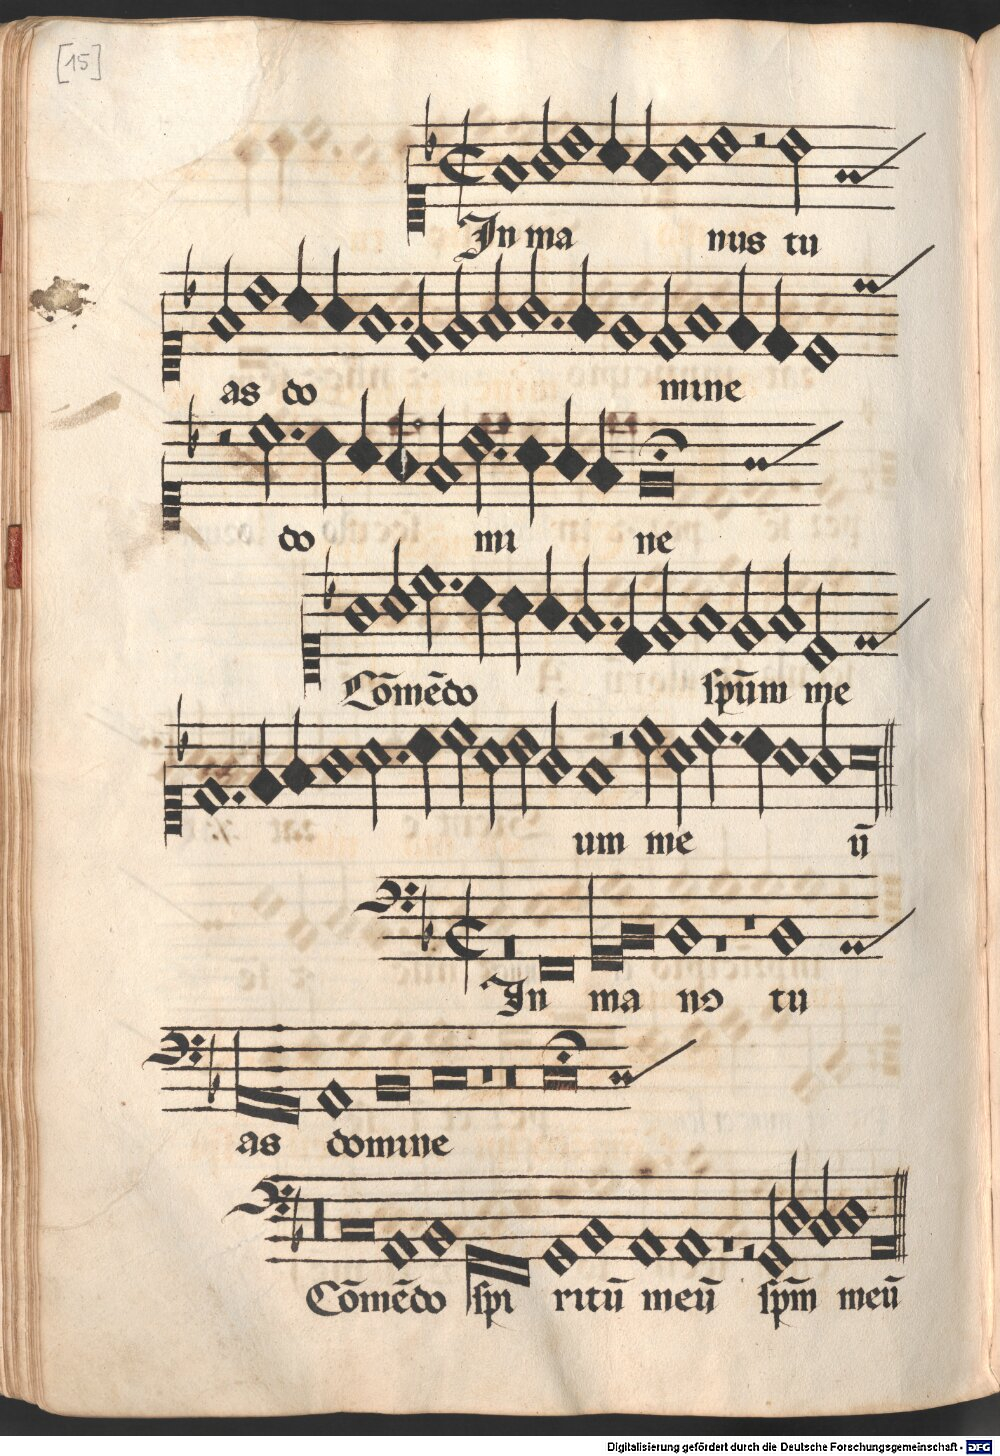 [15]
In ma nus tu
as do mine
do mi ne
Cōmēdo spūm me
um me ū
In ma nꝯ tu
as domine
Cōmēdo spi ritū meū spm̄ meū
Digitalisierung gefördert durch die Deutsche Forschungsgemeinschaft - DFG